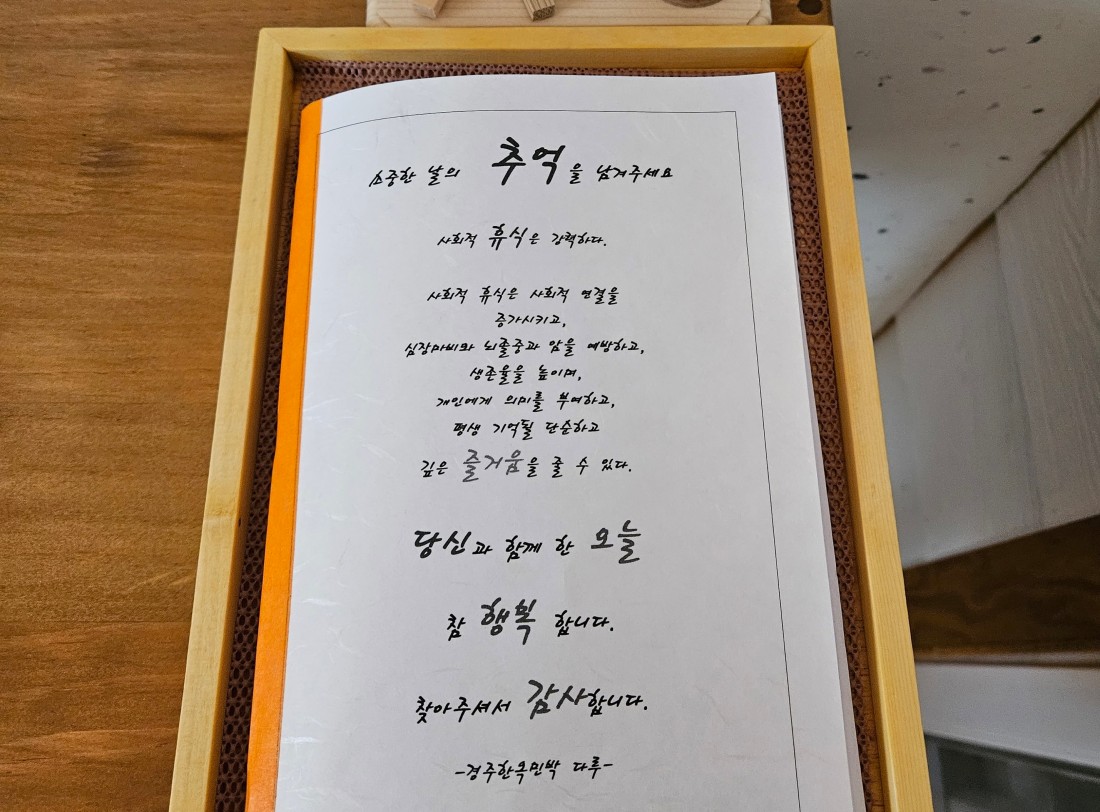 소중한 날의 추억을 남겨주세요
사회적 휴식은 강력하다.
사회적 휴식은 사회적 연결을
증가시키고,
심장마비와 뇌졸중과 암을 예방하고,
생존율을 높이며,
개인에게 의미를 부여하고,
평생 기억될 단순하고
깊은 즐거움을 줄 수 있다.
당신과 함께 한 오늘
참 행복 합니다.
찾아주셔서 감사합니다.
-경주한옥민박 다루-